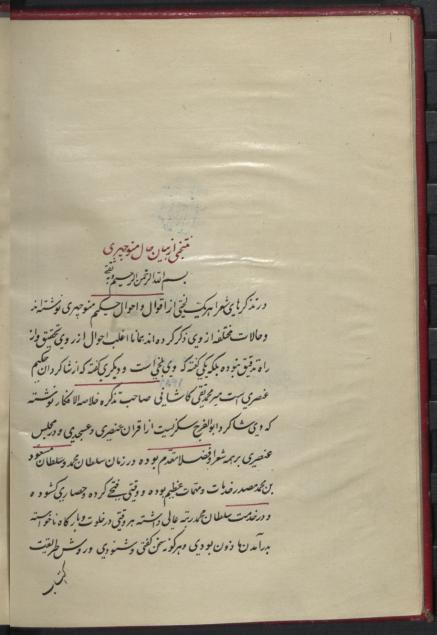 منتخبی از بیان حال منوچهری
بسم الله الرحمن الرحیم و به ثقتی
در تذکرهای شعرا هر یک لختی از اقوال و احوال حکیم منوچهری نوشته‌اند
و حالات مختلفه از وی ذکر کرده‌اند همانا اغلب احوال از روی تحقیق و از
راه تدقیق نبوده بلکه یکی گفته که وی بلخی است و دیگری گفته که از شاگردان حکیم
عنصری است میر محمد تقی کاشانی صاحب تذکره خلاصة الافکار نوشته
که وی شاگرد ابوالفرج سگزیست از اقران عنصری و عسجدی و در مجلس
عنصری بر همه شعرا و فضلا مقدم بوده و در زمان سلطان محمد و سلطان مسعود
بن محمد مصدر خدمات و مهمات عظیم بوده و وقتی فتحی کرده و حصاری گشوده
و در خدمت سلطان محمد رتبه عالی داشته هر وقتی در خلوت و بارگاه ناخواسته
به در آمدن ماذون بودی و هر گونه سخن گفتی و شنودی و روش طریقت